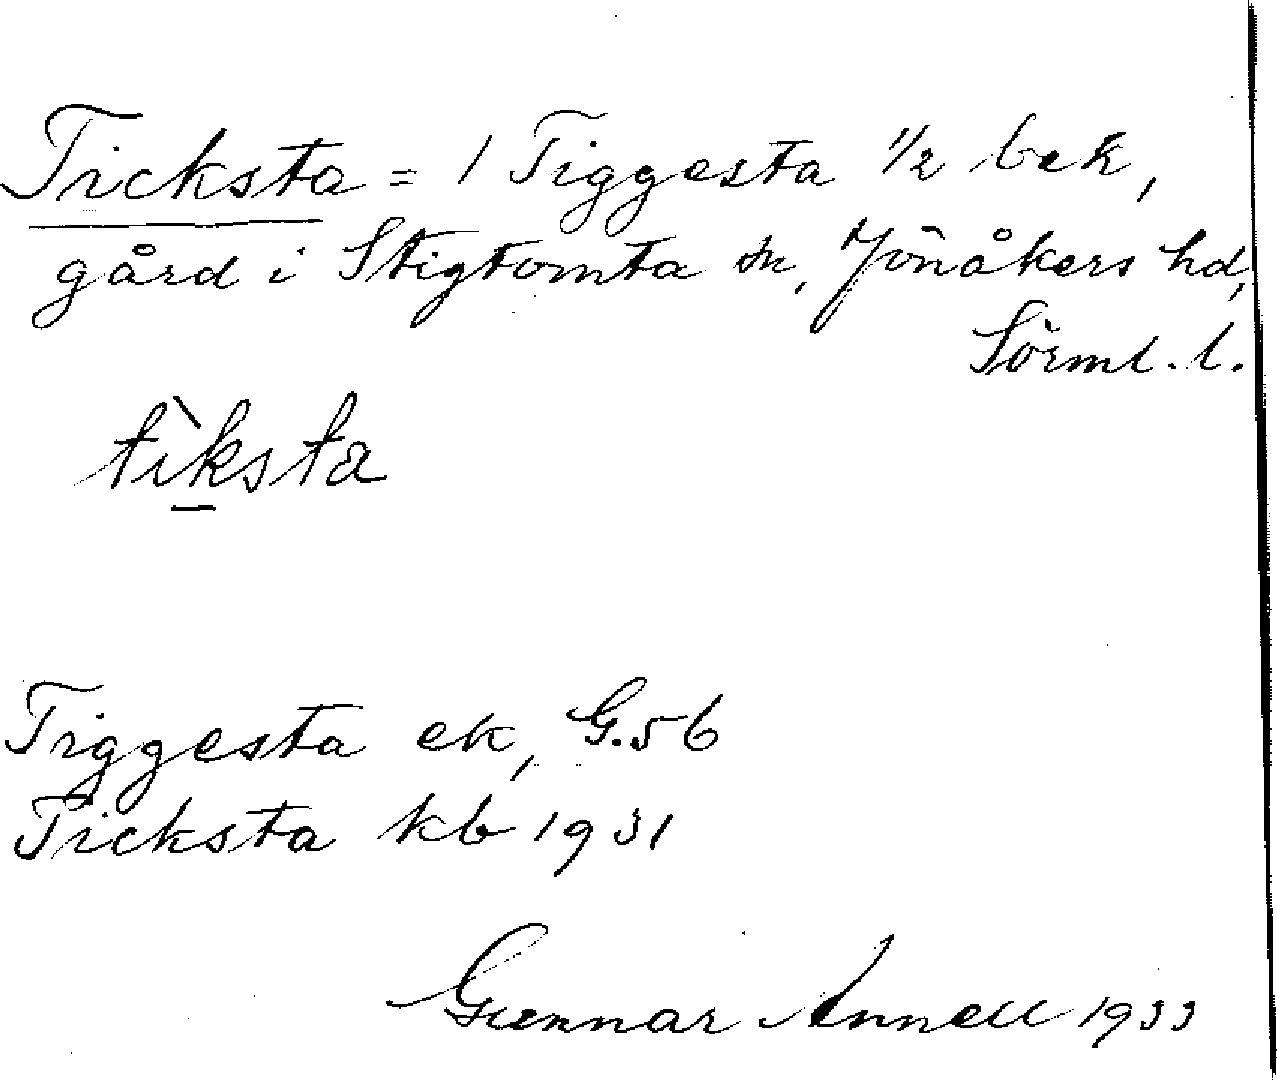 Ticksta = 1 Tiggesta 1/2 bek,
gård i Stigtomta sn, Jönåkers hd,
Sörml. l.
tìksta
Tiggesta ek, G.56
Ticksta kb 1931
Gunnar Annell 1933